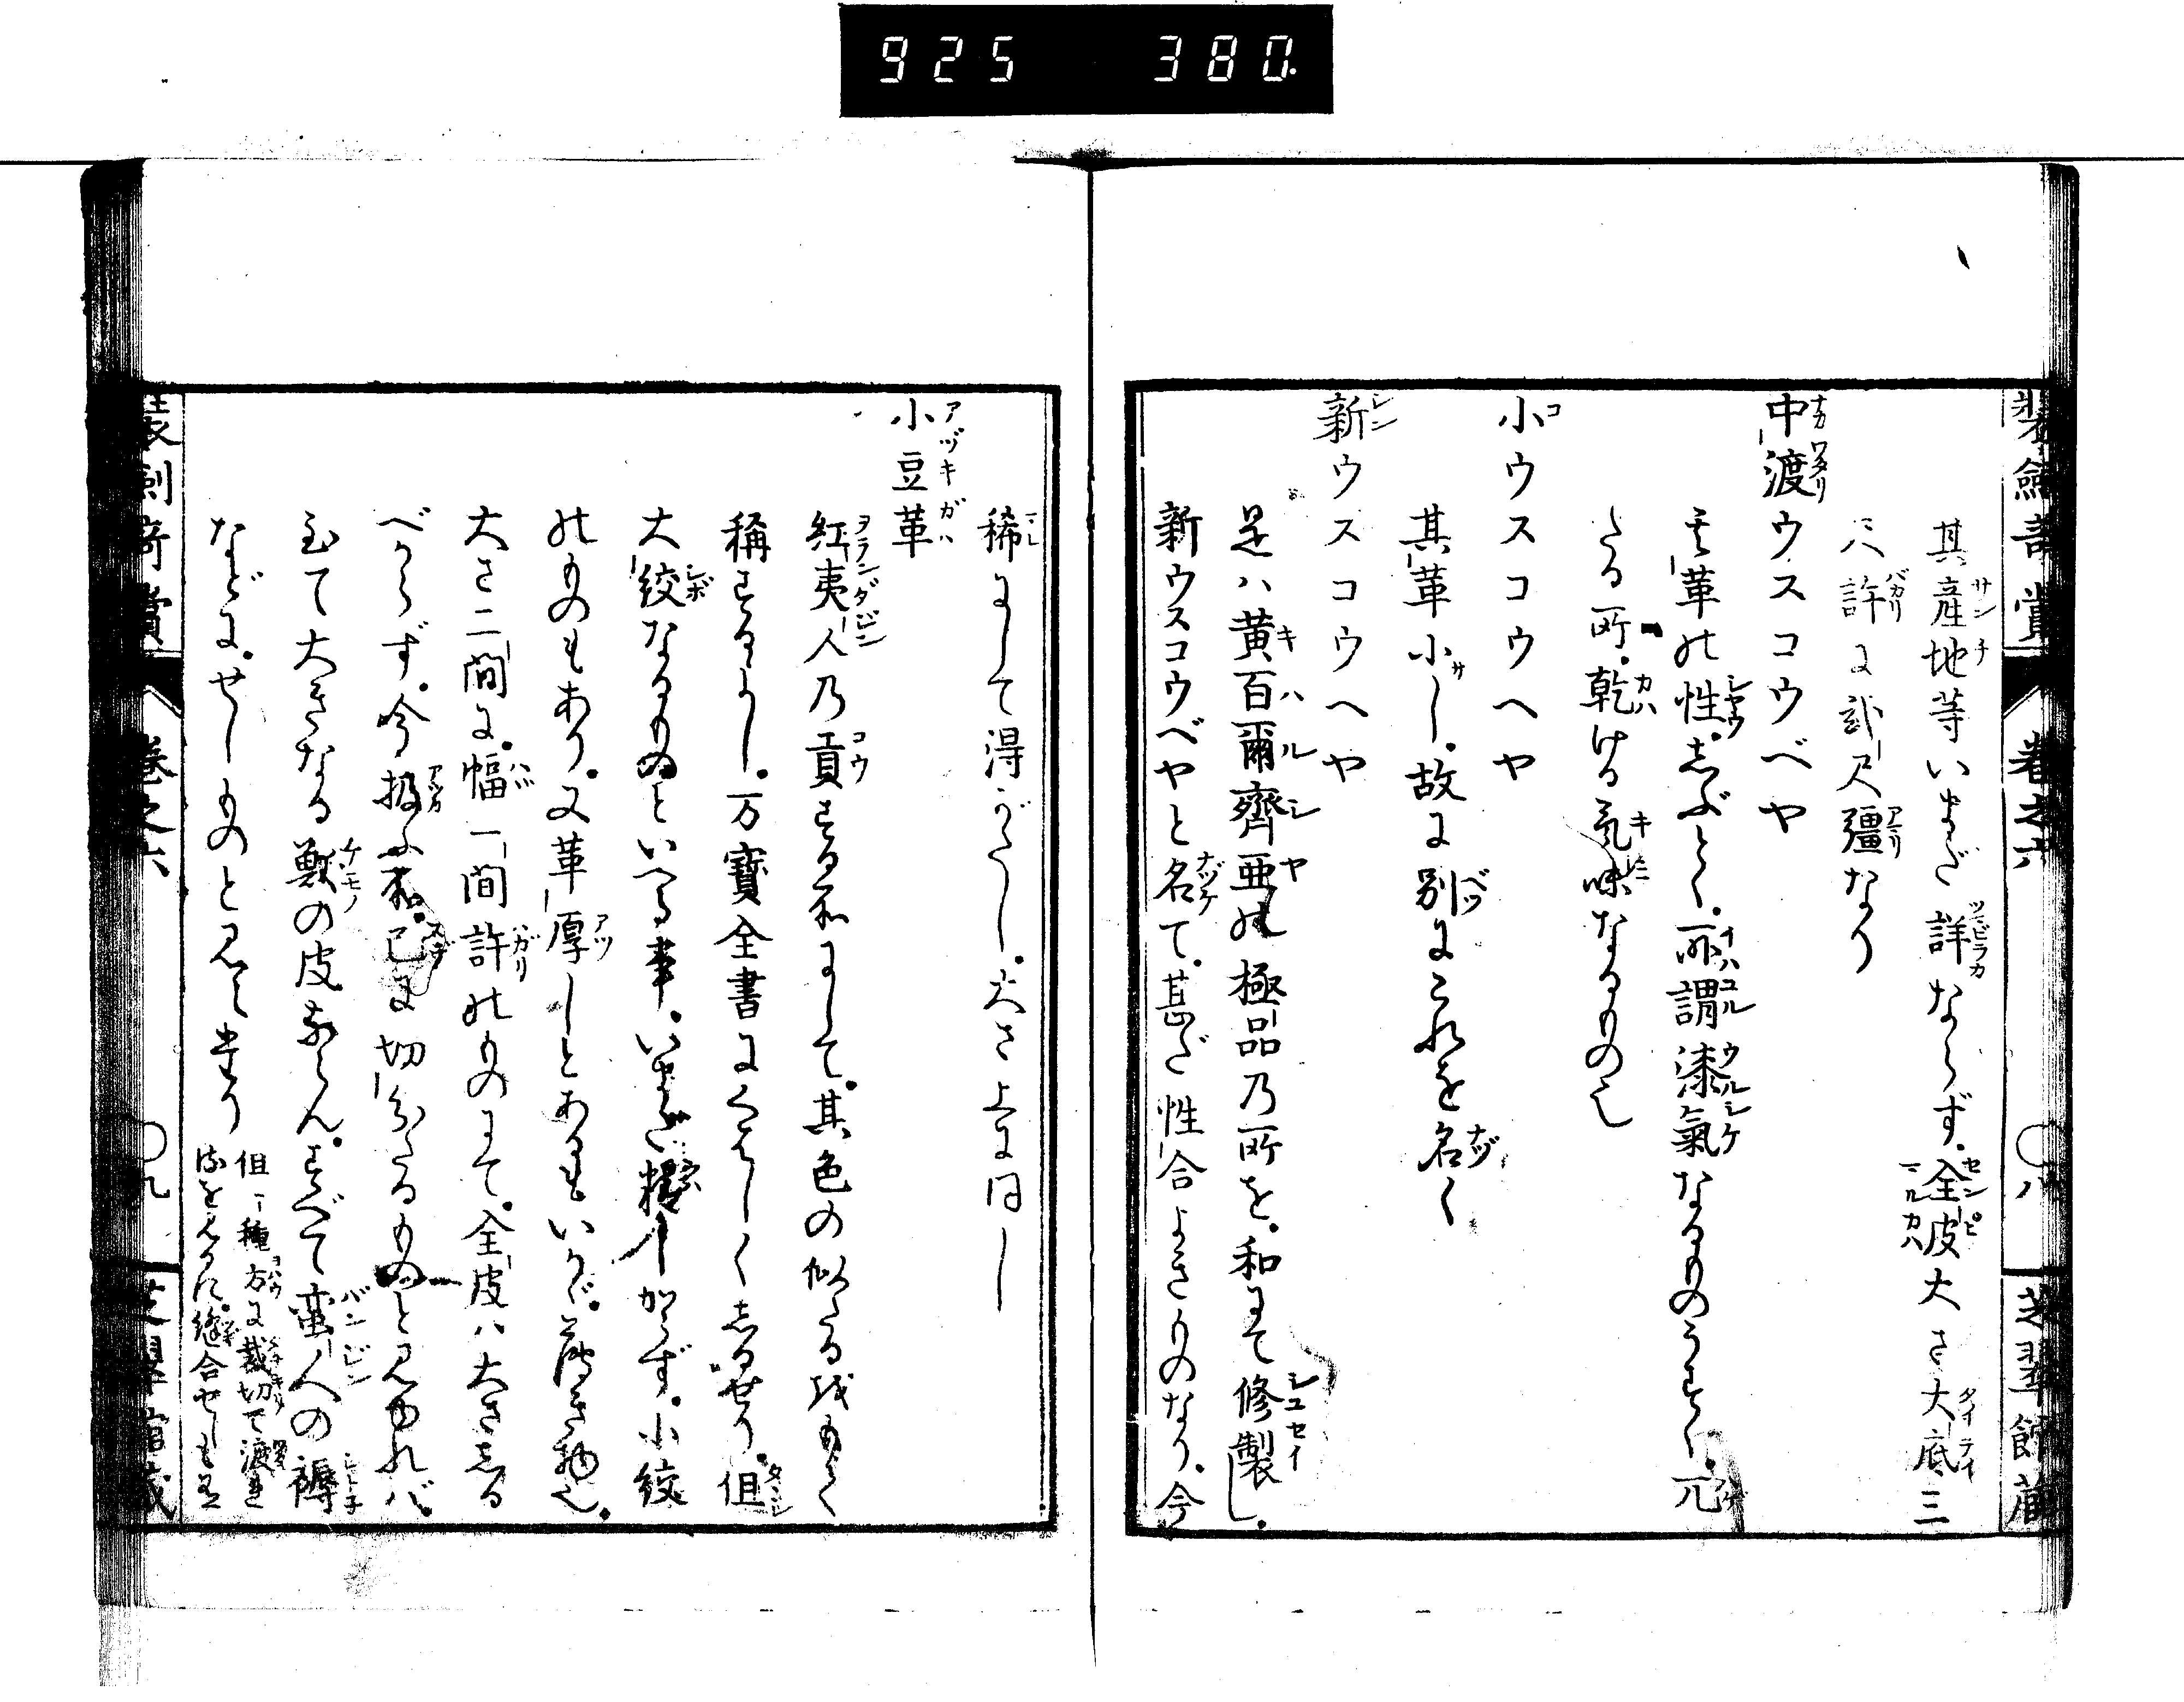 925 380.
其産地等いまだ詳ならず。全皮大さ大底三
尺許に弐尺彊なり
中渡ウスコウベヤ
其革の性。志ぶとく。所謂漆氣なるものうすく。元
たる所。乾ける氣味なるもの也
小ウスコウヘヤ
其革小し。故に別にこれを名く
新ウスコウヘヤ
是ハ黄百爾齊亜の極品乃所を。和にて修製し。
新ウスコウベヤと名て。甚だ性合よきものなり。今
稀にして得がたし。大さ上に同し
小豆革
紅夷人乃貢する和にして。其色の似たる故もかく
稱するよし。万寳全書にくはしく志るせり。但
大絞なるものといへる事。いまだ糺しがたず。小絞
のものもあり。又革厚しとあるもいかゞ。薄き物也。
大さ二間に。幅一間許のものにて。全皮ハ大さ志る
べからず。今扱ふ所。已に切分たるものと見ゆれバ。
至て大きなる獣の皮ならん。すべて蛮人の褥
などに。せしものと見えたり
但一種方に裁切て渡れ
るを見るに。縫合せしも有
卷之六